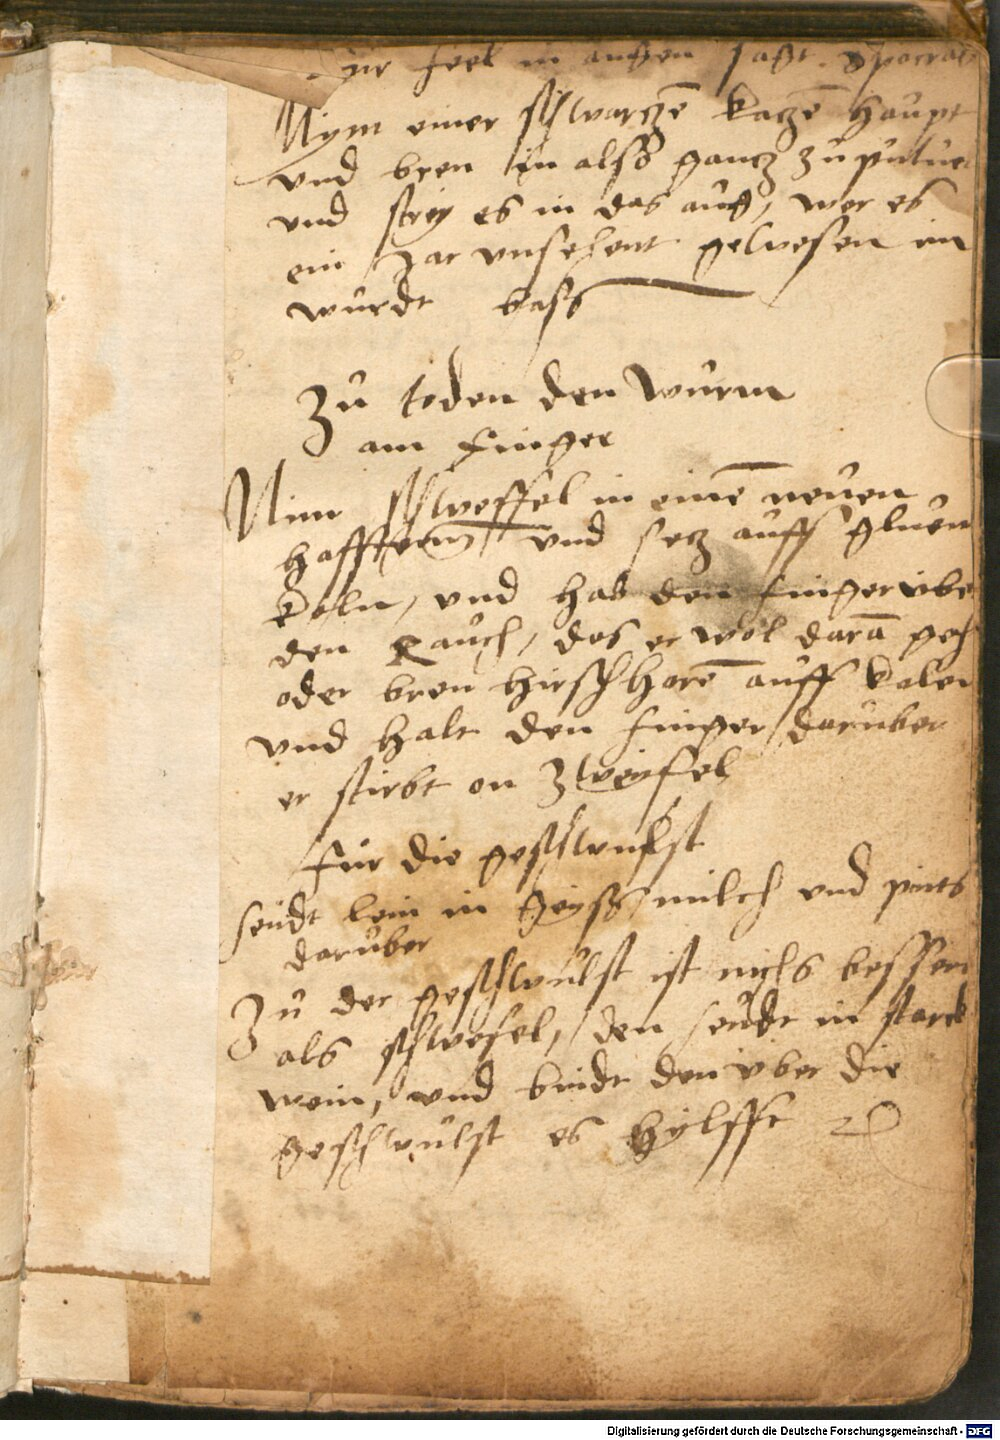 für feel in augen sagt ypocras
Nym einer schwartzē katzē haupt
vnd bren in also gantz zu puluer
vnd strey es in das aug, wer es
ein Jar vnsehent gewesen im
wurdt bass
Zů toden den wurm
am finger
Nim schweffel in einē neuen
hafften vnd setz auff gluen
koln, vnd hab den finger vbe
den Rauch, das er wol darā geh
oder bren hirschhorē auff kolen
vnd halt den finger darüber
er stirbt on zweyfel
für die geschwulst
seudt lein in geyss milch vnd pints
darüber
Zů der geschwülst ist nichs besser
als schwefel, den seudt in starck
wein, vnd bindt den vber die
geschwülst es hylfft
Digitalisierung gefördert durch die Deutsche Forschungsgemeinschaft - DFG